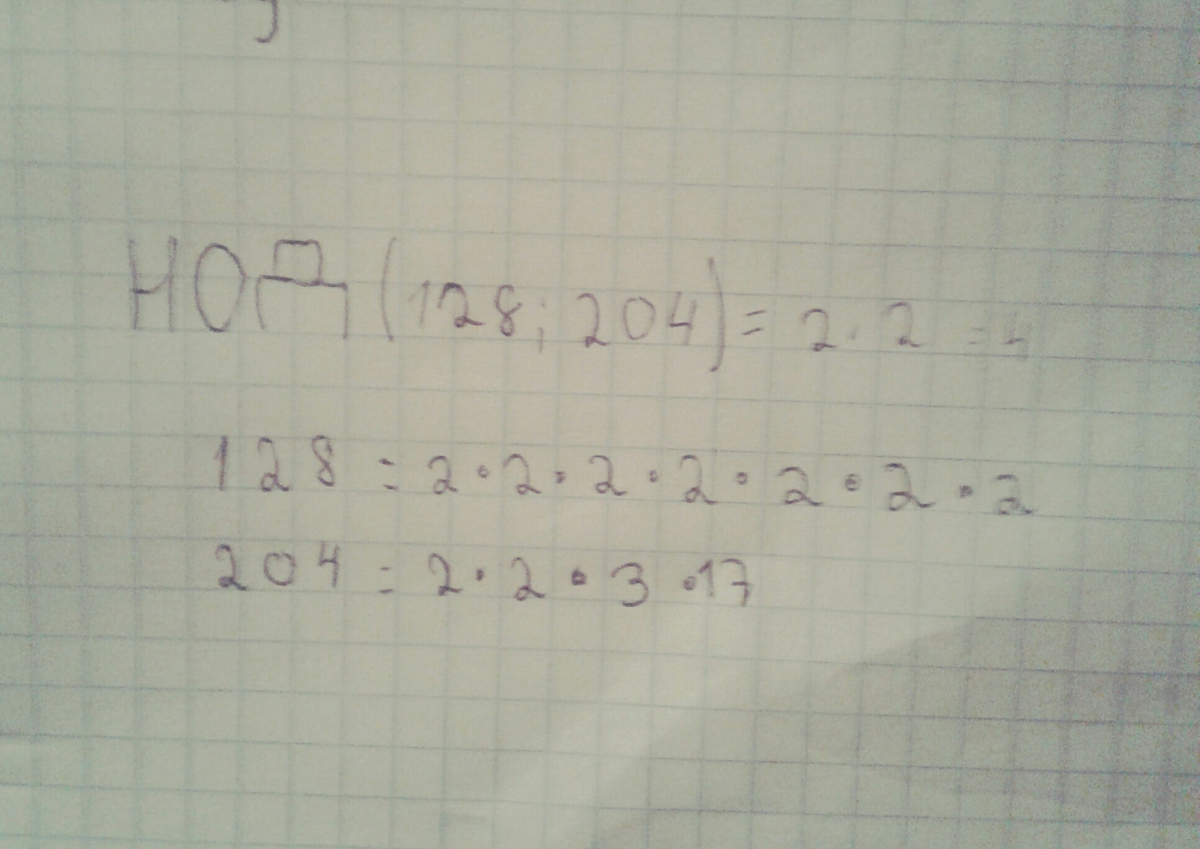 НОД (128; 204) = 2 · 2 = 4
128 = 2 · 2 · 2 · 2 · 2 · 2 · 2
204 = 2 · 2 · 3 · 17